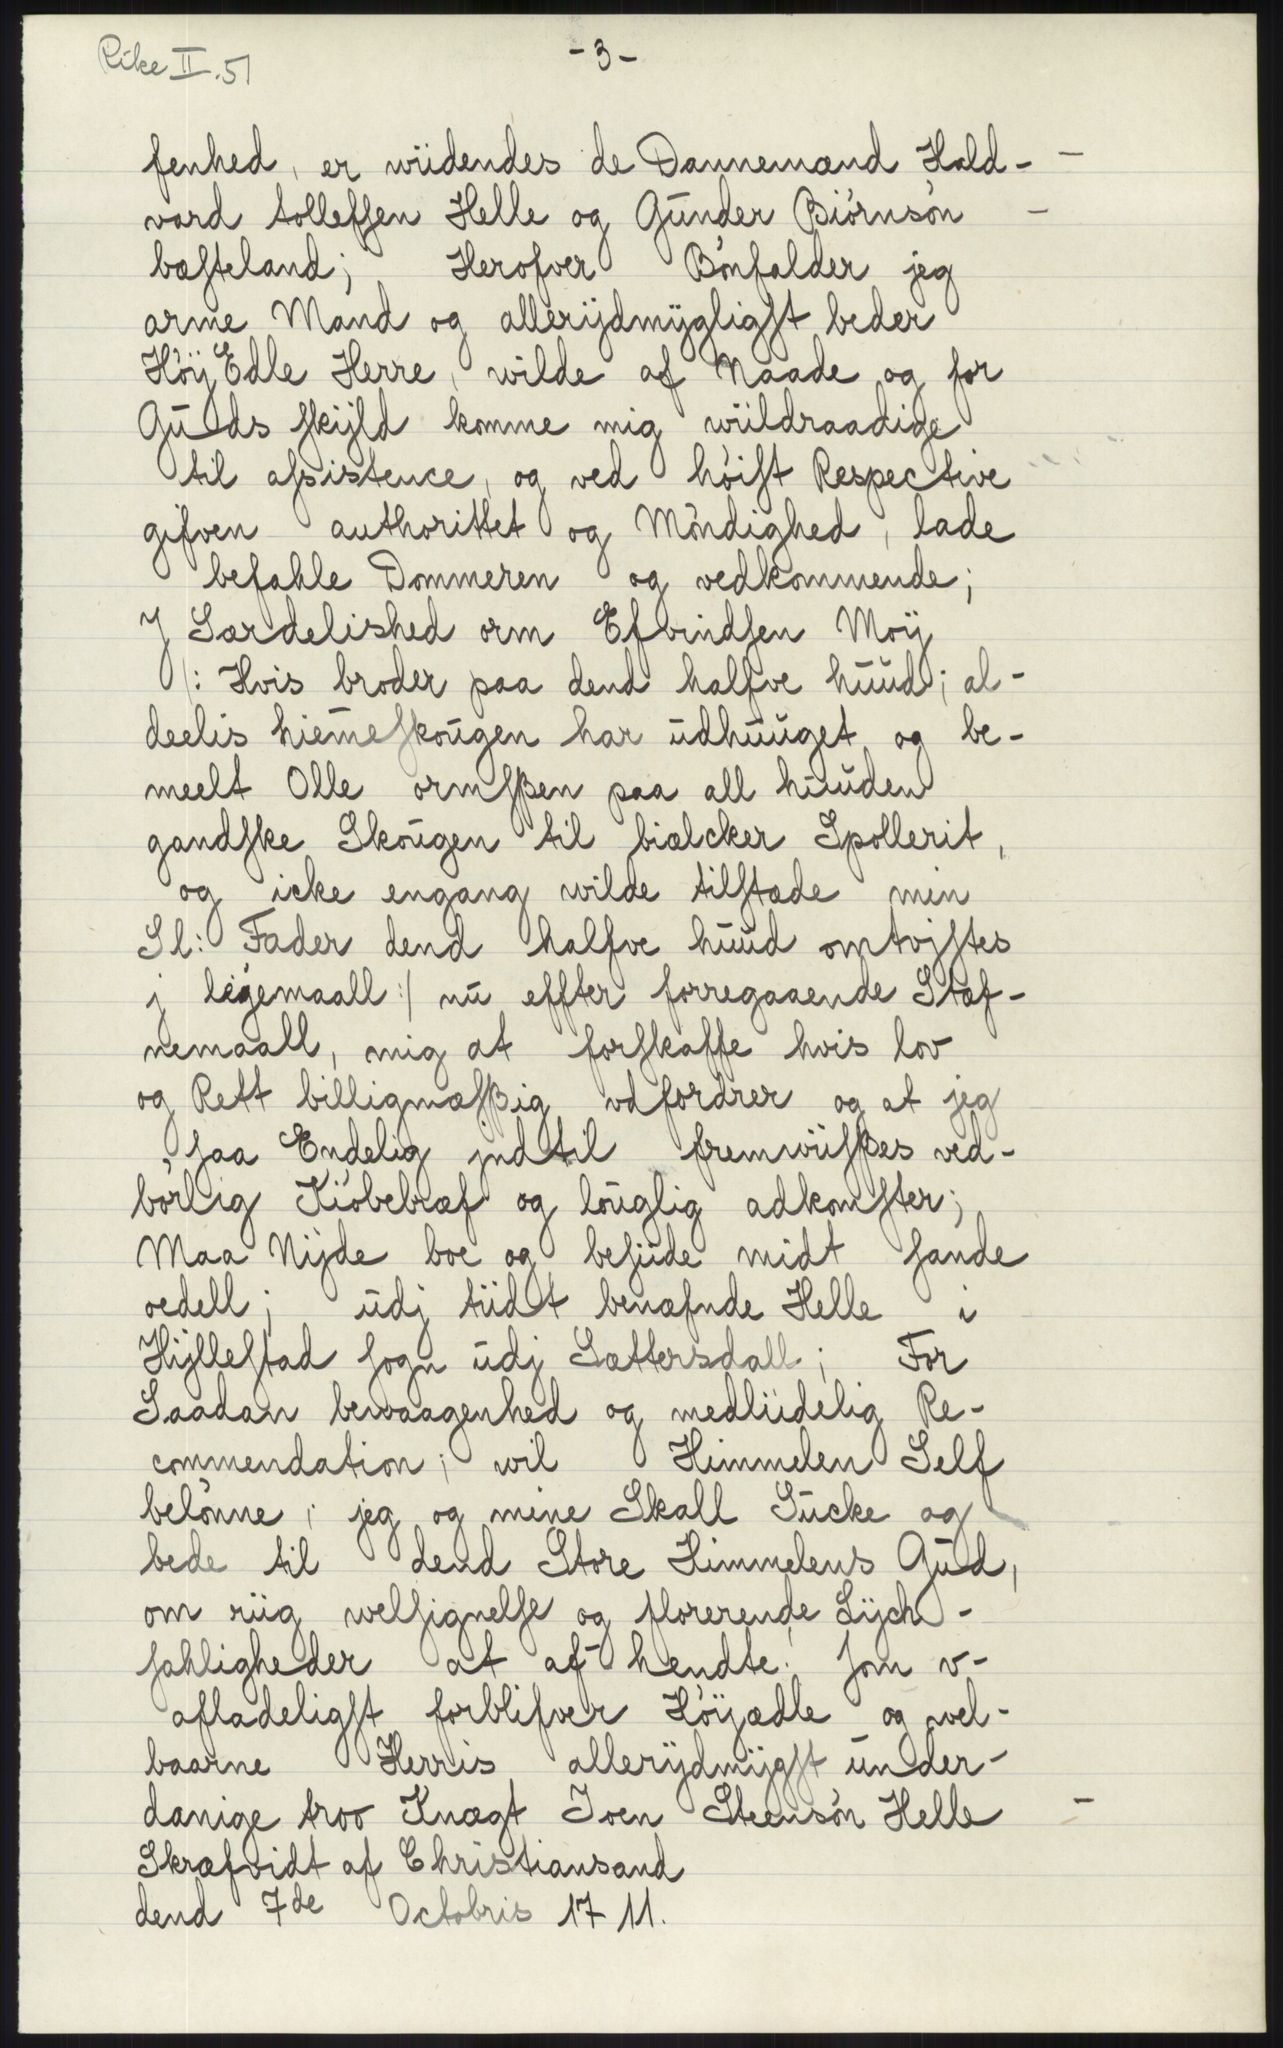 Rike II. 51
- 3 -
fenhed, er wiidendes de Dannemænd Hald-
vard tolleffsen Helle og Gūnder Biórnsón
bæsteland; Herofver Bónfalder jeg
arme Mand og allerijdmÿgligst beder
HóÿEdle Herre, wilde af Naade og for
Gūds skijld komme mig wiildraadige
til assistence, og ved hóist Respective
gifven authorittet og Móndighed, lade
befahle Dommeren og vedkommende;
J Særdelished orm Efvindsen Moÿ
/: Hvis broder paa dend halfve hūūd; al-
deelis hiemeskougen har ūdhūūget og be-
meelt Olle ormsßen paa all hūūden
gandske Skoūgen til biælcker Spollerit,
og icke engang wilde tilstæde min
Sl: Fader dend halfve hūūd omtvistes
j leÿemaall :/ nū effter forregaaende Stæf-
nemaall, mig at forskaffe hvis lov
og Rett billigmæsßig vdfordrer og at jeg
saa Endelig jndtil fremwiisßes ved-
bórlig Kióbebræf og loūglig adkomster;
Maa Nijde boe og besiide midt sande
oedell; ūdj tiidt benæfnde Helle i
Hÿllestad sogn ūdj Sættersdall; For
Saadan bevaagenhed og medliidelig Re-
commendation; wil Himmelen Self
belónne; jeg og mine Skall Sūcke og
bede til dend Store Himmelens Gūd,
om riig welsignelse og florerende Lÿck-
sahligheder at af hendte. som v-
afladeligst forblifver Hóÿædle og vel-
baarne Herris allerijdmÿgst ūnder-
danige troo Knægt Joen Steensón Helle
Skræfvidt af Christiansand
dend 7de Octobris 1711.